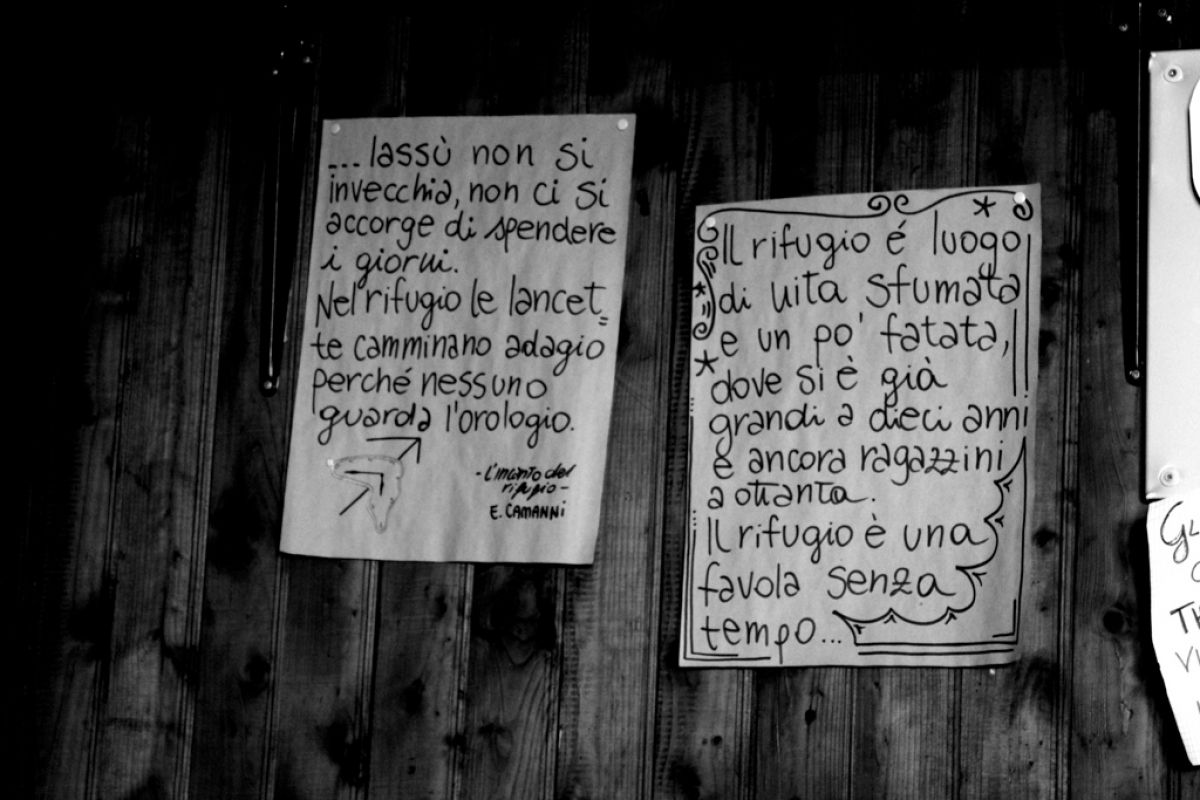 ... lassù non si
invecchia, non ci si
accorge di spendere
i giorni.
Nel rifugio le lancet=
te camminano adagio
perché nessuno
guarda l'orologio.
- L'incanto del
rifugio -
E. CAMANNI
Il rifugio é luogo
di vita sfumata
e un po' fatata,
dove si è già
grandi a dieci anni
e ancora ragazzini
a ottanta.
Il rifugio è una
favola senza
tempo...